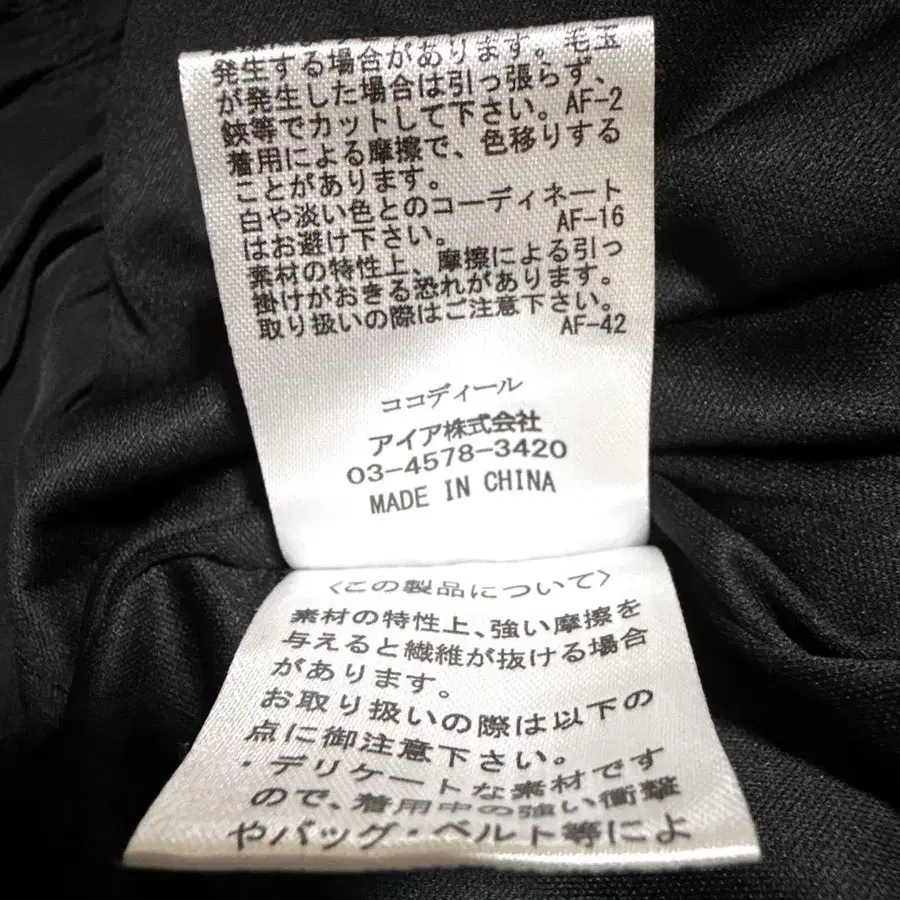 発生する場合があります。毛玉
が発生した場合は引っ張らず、
鋏等でカットして下さい。AF-2
着用による摩擦で、色移りする
ことがあります。
白や淡い色とのコーディネート
はお避け下さい。 AF-16
素材の特性上、摩擦による引っ
掛けがおきる恐れがあります。
取り扱いの際はご注意下さい。
AF-42
ココディール
アイア株式会社
03-4578-3420
MADE IN CHINA
〈この製品について〉
素材の特性上、強い摩擦を
与えると繊維が抜ける場合
があります。
お取り扱いの際は以下の
点に御注意下さい。
・デリケートな素材です
ので、着用中の強い衝撃
やバッグ・ベルト等によ